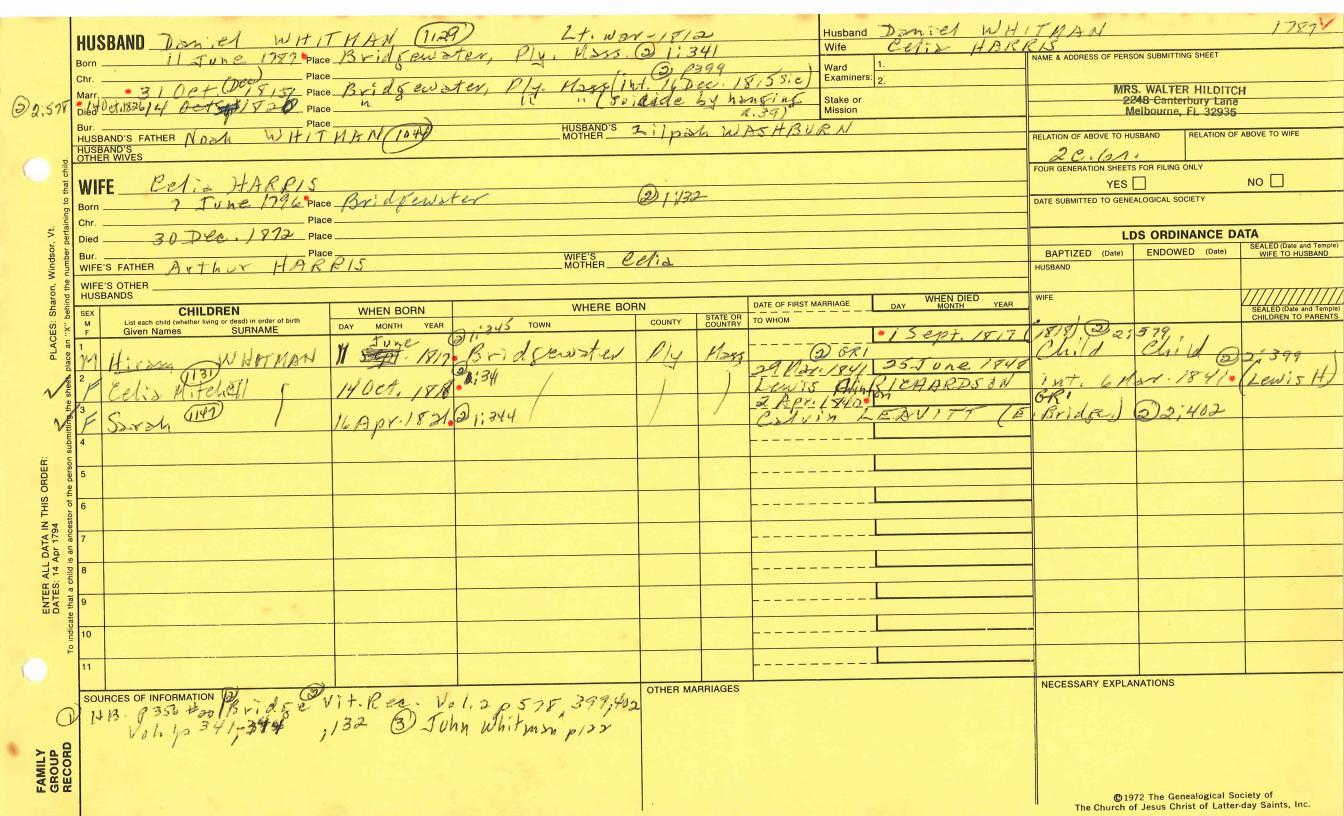 HUSBAND Daniel WHITMAN (1129) Lt. War-1812
Husband Daniel WHITMAN 1787
Wife Celia HARRIS
Born 11 June 1787 Place Bridgewater, Ply. Mass. ② 1:341
Chr. Place ② p399
Marr. 31 Oct (Dec) 1815 Place Bridgewater, Ply. Mass (int. 16 Dec. 1815 sic)
② 2,578 14 Oct. 1826 Died 14 Place " " " (Suicide by hanging
Bur. Place 2.39)
HUSBAND'S FATHER Noah WHITMAN (104) HUSBAND'S MOTHER Zilpah WASHBURN
HUSBAND'S OTHER WIVES
Ward Examiners: 1.
2.
Stake or Mission
NAME & ADDRESS OF PERSON SUBMITTING SHEET
MRS. WALTER HILDITCH
2248 Canterbury Lane
Melbourne, FL 32935
RELATION OF ABOVE TO HUSBAND RELATION OF ABOVE TO WIFE
FOUR GENERATION SHEETS FOR FILING ONLY
YES NO
DATE SUBMITTED TO GENEALOGICAL SOCIETY
WIFE Celia HARRIS
Born 7 June 1796 Place Bridgewater ② 1:132
Chr. Place
Died 30 Dec. 1872 Place
Bur. Place
WIFE'S FATHER Arthur HARRIS WIFE'S MOTHER Celia
WIFE'S OTHER HUSBANDS
LDS ORDINANCE DATA
BAPTIZED (Date) ENDOWED (Date) SEALED (Date and Temple) WIFE TO HUSBAND
HUSBAND
WIFE
SEALED (Date and Temple) CHILDREN TO PARENTS
SEX M F
CHILDREN
List each child (whether living or dead) in order of birth
Given Names SURNAME
WHEN BORN
DAY MONTH YEAR
WHERE BORN
TOWN COUNTY STATE OR COUNTRY
DATE OF FIRST MARRIAGE
TO WHOM
WHEN DIED
DAY MONTH YEAR
1 M Hiram WHITMAN June 1817 ② 1:345 Bridgewater Ply Mass 1 Sept. 1817 (1818) ② 2:579 Child Child
2 F Celia Mitchell (1131) 14 Oct. 1818 ② 1:341 29 Mar. 1841 ② GR1 25 June 1848 Lewis RICHARDSON int. 6 Mar. 1841 (Lewis H) ② 2:399
3 F Sarah (1147) 16 Apr. 1821 ② 1:344 2 Apr. 1842 Calvin LEAVITT (E. Bridge.) GR1 ② 2:402
4
5
6
7
8
9
10
11
PLACES: Sharon, Windsor, Vt.
ENTER ALL DATA IN THIS ORDER:
DATES: 14 Apr 1794
To indicate that a child is an ancestor of the person submitting the sheet, place an "X" behind the number pertaining to that child.
FAMILY GROUP RECORD
SOURCES OF INFORMATION
① HB. p356 #20 ② Bridge Vit. Rec. Vol. 2 p 578, 399, 402
Vol. 1 p 341, 344, 132 ③ John Whitman p122
OTHER MARRIAGES
NECESSARY EXPLANATIONS
©1972 The Genealogical Society of
The Church of Jesus Christ of Latter-day Saints, Inc.